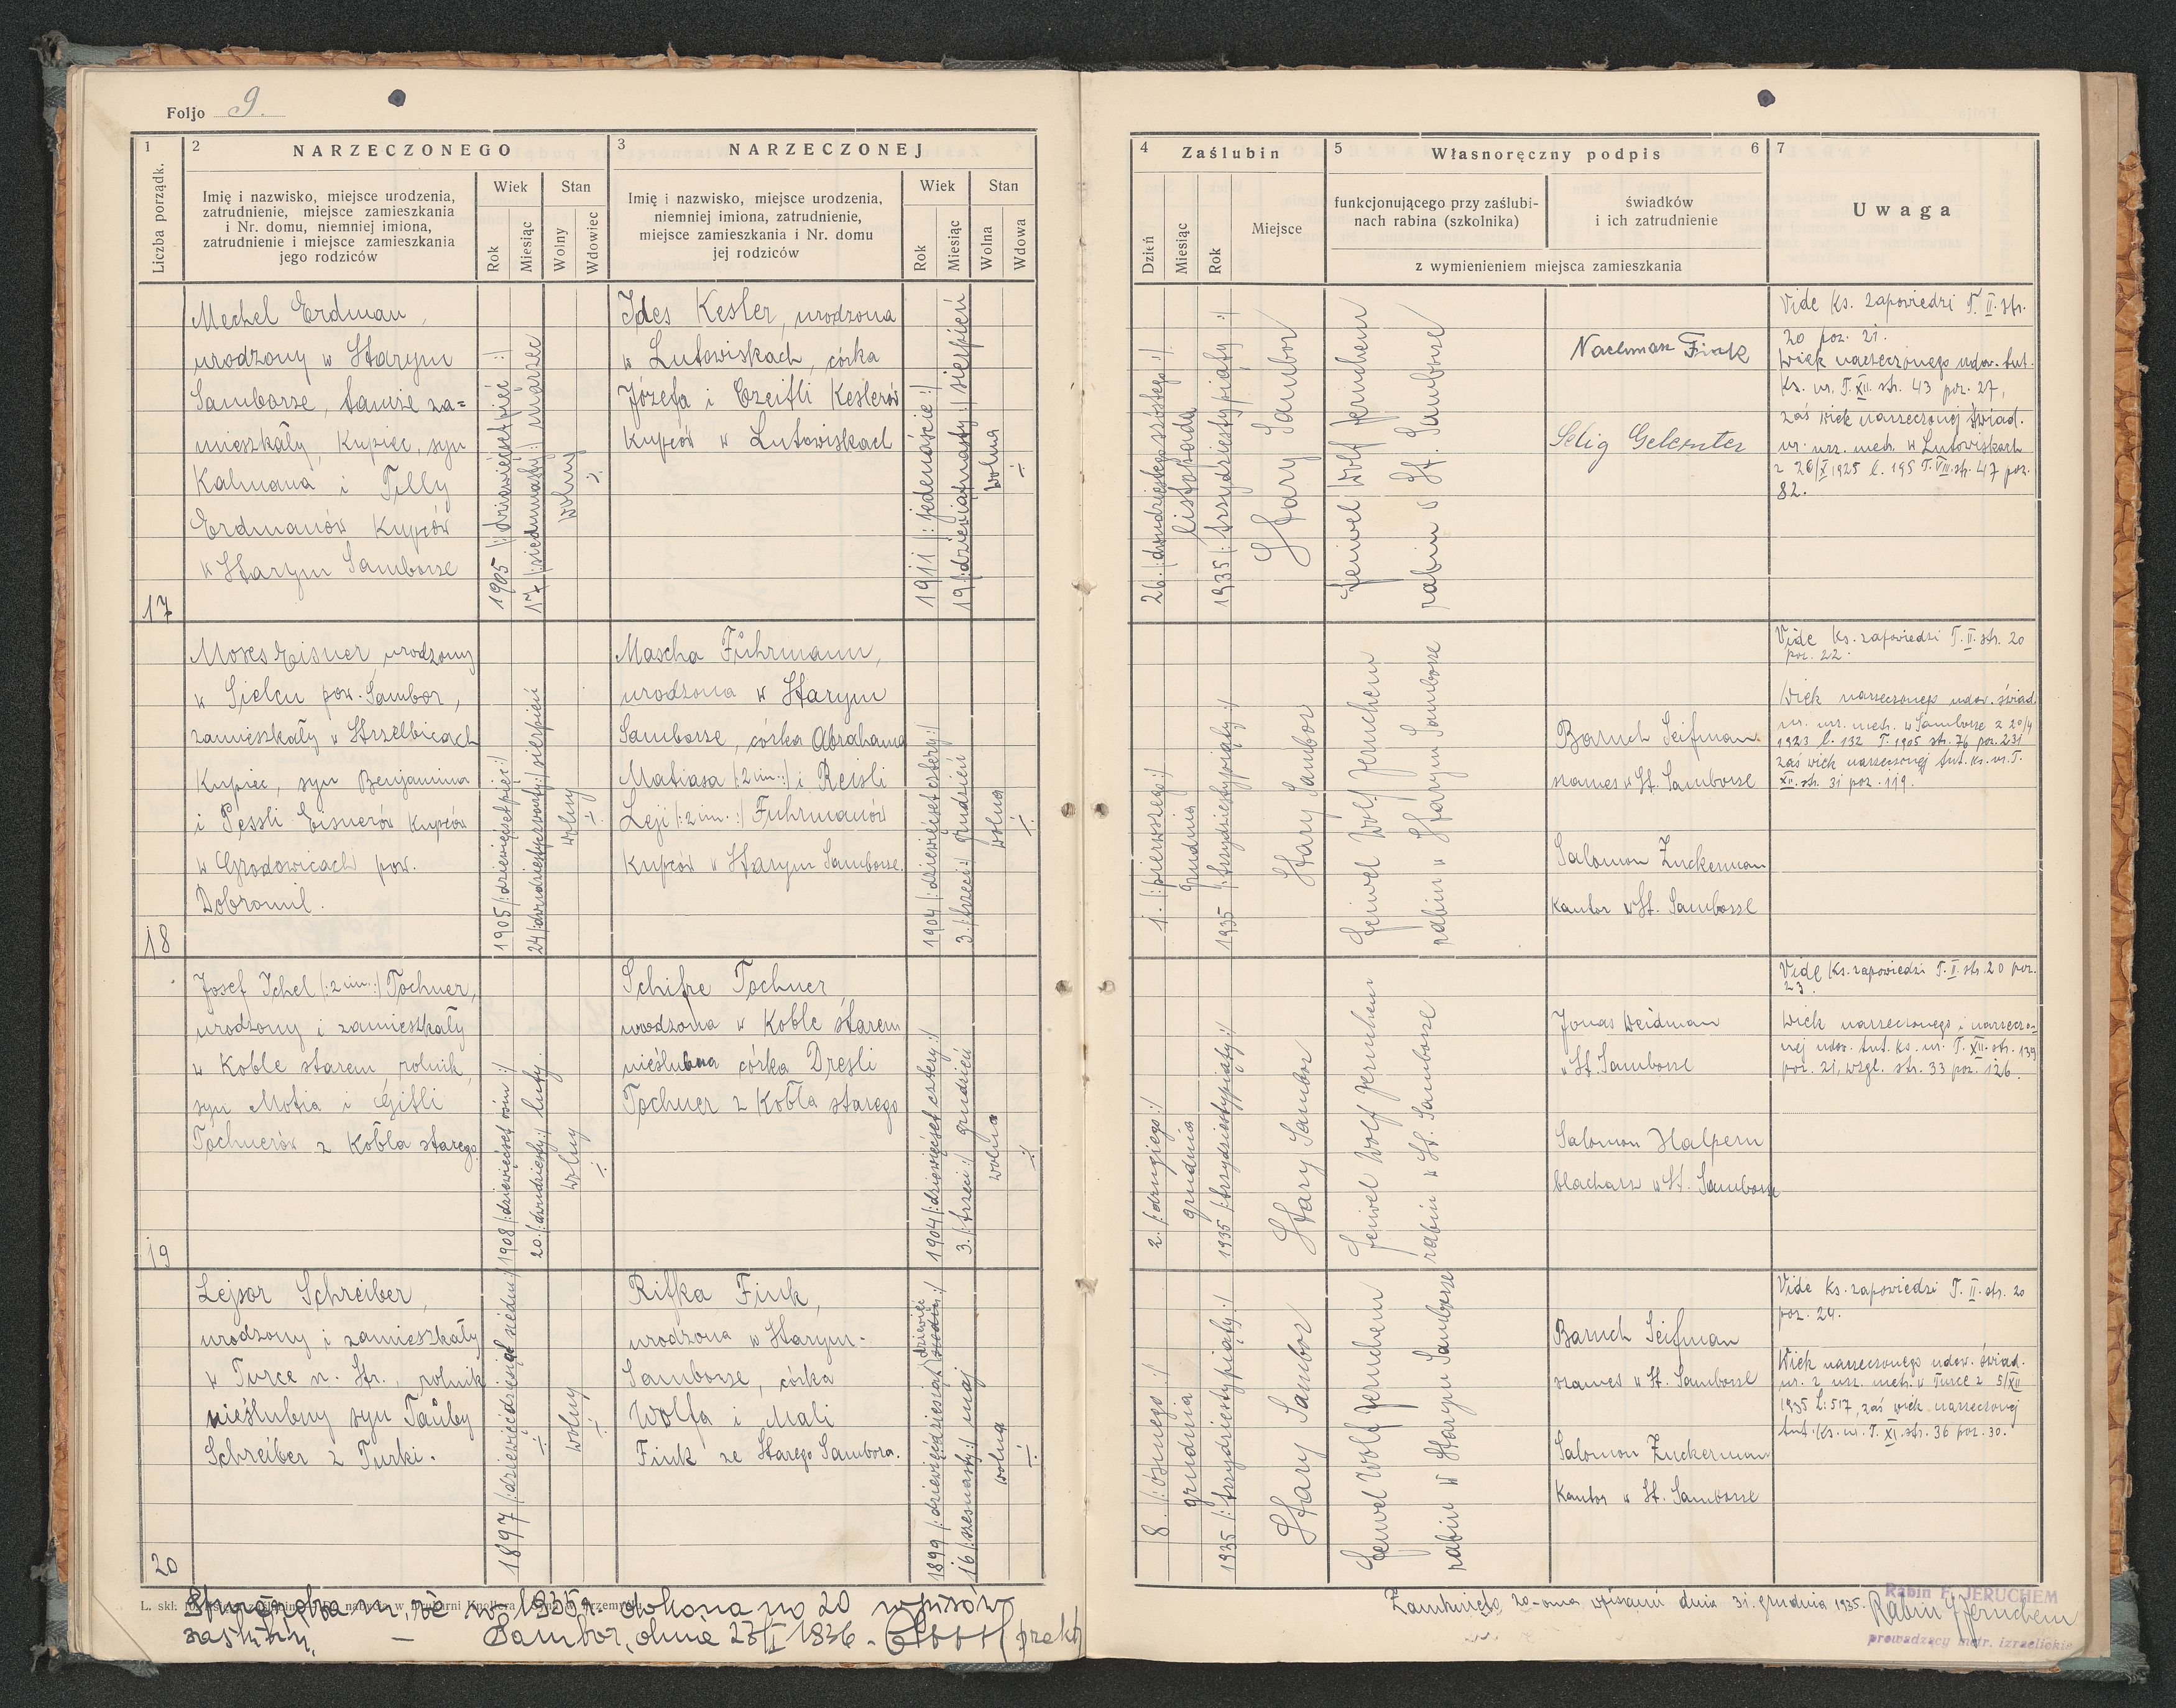 Foljo 9.
1
Liczba porządk.
2
NARZECZONEGO
Imię i nazwisko, miejsce urodzenia,
zatrudnienie, miejsce zamieszkania
i Nr. domu, niemniej imiona,
zatrudnienie i miejsce zamieszkania
jego rodziców
Wiek
Rok
Miesiąc
Stan
Wolny
Wdowiec
3
NARZECZONEJ
Imię i nazwisko, miejsce urodzenia,
niemniej imiona, zatrudnienie,
miejsce zamieszkania i Nr. domu
jej rodziców
Wiek
Rok
Miesiąc
Stan
Wolna
Wdowa
4
Zaślubin
Dzień
Miesiąc
Rok
Miejsce
5
Własnoręczny podpis
6
funkcjonującego przy zaślubi-
nach rabina (szkolnika)
świadków
i ich zatrudnienie
z wymienieniem miejsca zamieszkania
7
Uwaga
17
Mechel Erdman,
urodzony w Starym
Samborze, tamże za=
mieszkały, Kupiec, syn
Kalmana i Tilly
Erdmanów Kupców
w Starym Samborze
1905 /: dziewięćset pięć :/
17 /: siedmnasty :/ marzec
wolny
÷
Ides Kesler, urodzona
w Lutowiskach, córka
Józefa i Czeitli Keslerów
Kupców w Lutowiskach
1911 /: jedenaście :/
19 /: dziewiątnasty :/ sierpień
wolna
÷
26. /: dwudziestego szóstego :/
listopada
1935 /: trzydziesty piąty :/
Stary Sambor
Feiwel Wolf Jeruchem
rabin w St. Samborze
Nachman Fink
Selig Gelernter
Vide Ks. zapowiedzi T. II. str.
20 poz. 21.
Wiek narzeczonego udow. tut.
Ks. ur. T. XII. str. 43 poz. 27,
zaś wiek narzeczonej świad.
ur. urz. metr. w Lutowiskach
z 26/X 1925 l. 195 T. VIII. str. 47 poz.
82.
18
Moses Eisner, urodzony
w Sielcu pow. Sambor,
zamieszkały w Strzelbicach
Kupiec, syn Benjamina
i Pessli Eisnerów Kupców
w Grodowicach pow.
Dobromil.
1905 /: dziewięćset pięć :/
24 /: dwudziesty czwarty :/ sierpień
wolny
÷
Mascha Fuhrmann,
urodzona w Starym
Samborze, córka Abrahama
Matiasa /: 2 im. :/ i Reisli
Leji /: 2 im. :/ Fuhrmanów
Kupców w Starym Samborze.
1904 /: dziewięćset cztery :/
3. /: trzeci :/ grudzień
wolna
÷
1. /: pierwszego :/
grudnia
1935 /: trzydziesty piąty :/
Stary Sambor
Feiwel Wolf Jeruchem
rabin w Starym Samborze
Baruch Seifman
szames w St. Samborze
Salomon Zuckerman
Kantor w St. Samborze
Vide Ks. zapowiedzi T. II. str. 20
poz. 22.
Wiek narzeczonego udow. świad.
ur. urz. metr. w Samborze z 20/4
1923 l. 132 T. 1905 str. 76 poz. 231
zaś wiek narzeczonej tut. ks. ur. T.
XII. str. 31 poz. 119.
19
Josef Ichel /: 2 im. :/ Tochner,
urodzony i zamieszkały
w Koble starem rolnik,
syn Motia i Gitli
Tochnerów z Kobla starego
1908 /: dziewięćset ośm :/
20. /: dwudziesty :/ luty.
wolny
÷
Schifre Tochner
urodzona w Koble starem
nieślubna córka Dresli
Tochner z Kobla starego
1904 /: dziewięćset cztery :/
3. /: trzeci :/ grudzień
wolna
÷
2. /: drugiego :/
grudnia
1935 /: trzydziesty piąty :/
Stary Sambor
Feiwel Wolf Jeruchem
rabin w St. Samborze
Jonas Weidman
w St. Samborze
Salomon Halpern
blacharz w St. Samborze
Vide Ks. zapowiedzi T. II. str. 20 poz.
23.
Wiek narzeczonego i narzeczo-
nej udow. tut. ks. ur. T. XII. str. 139
poz. 21, wzgl. str. 33 poz. 126.
20
Lejsor Schreiber,
urodzony i zamieszkały
w Turce n. Str., rolnik
nieślubny syn Tauby
Schreiber z Turki.
1897 /: dziewięćdziesiąt siedm :/
÷
wolny
÷
Rifka Fink,
urodzona w Starym-
Samborze, córka
Wolfa i Mali
Fink ze Starego Sambora.
1899 /: dziewięćdziesiąt dziewięć siedm :/
16 /: szesnasty :/ maj
wolna
÷
8. /: ósmego :/
grudnia
1935 /: trzydziesty piąty :/
Stary Sambor
Feiwel Wolf Jeruchem
rabin w Starym Samborze
Baruch Seifman
szames w St. Samborze
Salomon Zuckerman
Kantor w St. Samborze
Vide Ks. zapowiedzi T. II. str. 20
poz. 24.
Wiek narzeczonego udow. świad.
ur. z urz. metr. w Turce z 5/XII
1935 L: 517, zaś wiek narzeczonej
tut. Ks. ur. T. XI. str. 36 poz. 30.
Stwierdza się, że w 1935 r. dokonano 20 wpisów
Sambor, dnia 23/I 1936.
Zamknięto 20-oma wpisami dnia 31. grudnia 1935.
Rabin F. JERUCHEM
Rabin F. Jeruchem
prowadzący metr. izraelickie